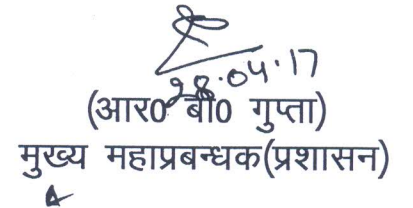 28.04.17
(आर0 बी0 गुप्ता)
मुख्य महाप्रबन्धक(प्रशासन)